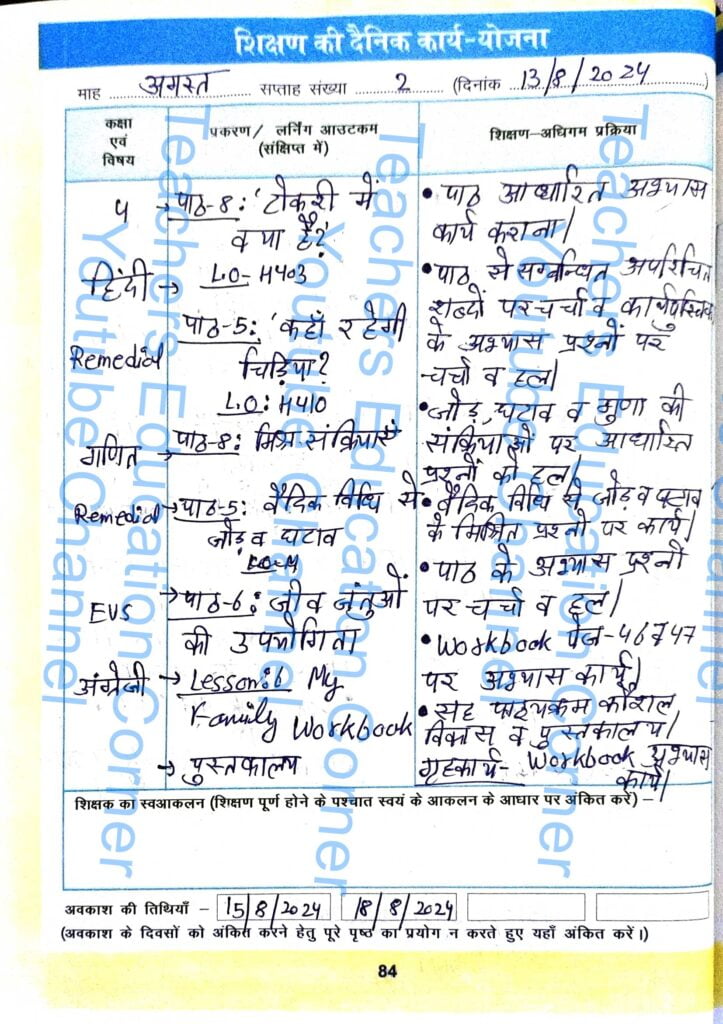 शिक्षण की दैनिक कार्य-योजना
माह अगस्त सप्ताह संख्या 2 (दिनांक 13/8/2024)
कक्षा एवं विषय
प्रकरण/ लर्निंग आउटकम (संक्षिप्त में)
शिक्षण-अधिगम प्रक्रिया
हिंदी → पाठ-8: 'टोकरी में
क्या है?'
L.O- H403
Remedial
पाठ-5: 'कहाँ रहेगी
चिड़िया?
L.O: H410
गणित → पाठ-8: मिश्र संक्रियाएं
Remedial → पाठ-5: वैदिक विधि से
जोड़ व घटाव
EVS → पाठ-6: जीव जंतुओं
की उपयोगिता
अंग्रेजी → Lesson:6 My
Family Workbook
→ पुस्तकालय
• पाठ आधारित अभ्यास
कार्य कराना।
• पाठ से सम्बन्धित अपरिचित
शब्दों पर चर्चा व कार्यपुस्तिका
के अभ्यास प्रश्नों पर
चर्चा व हल।
• जोड़, घटाव व गुणा की
संक्रियाओं पर आधारित
प्रश्नों को हल।
• वैदिक विधि से जोड़ व घटाव
के मिश्रित प्रश्नों पर कार्य।
• पाठ के अभ्यास प्रश्नों
पर चर्चा व हल।
• Workbook पेज-46 47
पर अभ्यास कार्य।
• सह पाठ्यक्रम कौशल
विकास व पुस्तकालय।
गृहकार्य- Workbook अभ्यास
कार्य।
शिक्षक का स्वआकलन (शिक्षण पूर्ण होने के पश्चात स्वयं के आकलन के आधार पर अंकित करें) –
अवकाश की तिथियाँ – 15/8/2024 18/8/2024
(अवकाश के दिवसों को अंकित करने हेतु पूरे पृष्ठ का प्रयोग न करते हुए यहाँ अंकित करें।)
84
Teachers Education Corner
Youtube Channel
Teachers Education Corner
Youtube Channel
Teachers Education Corner
Youtube Channel